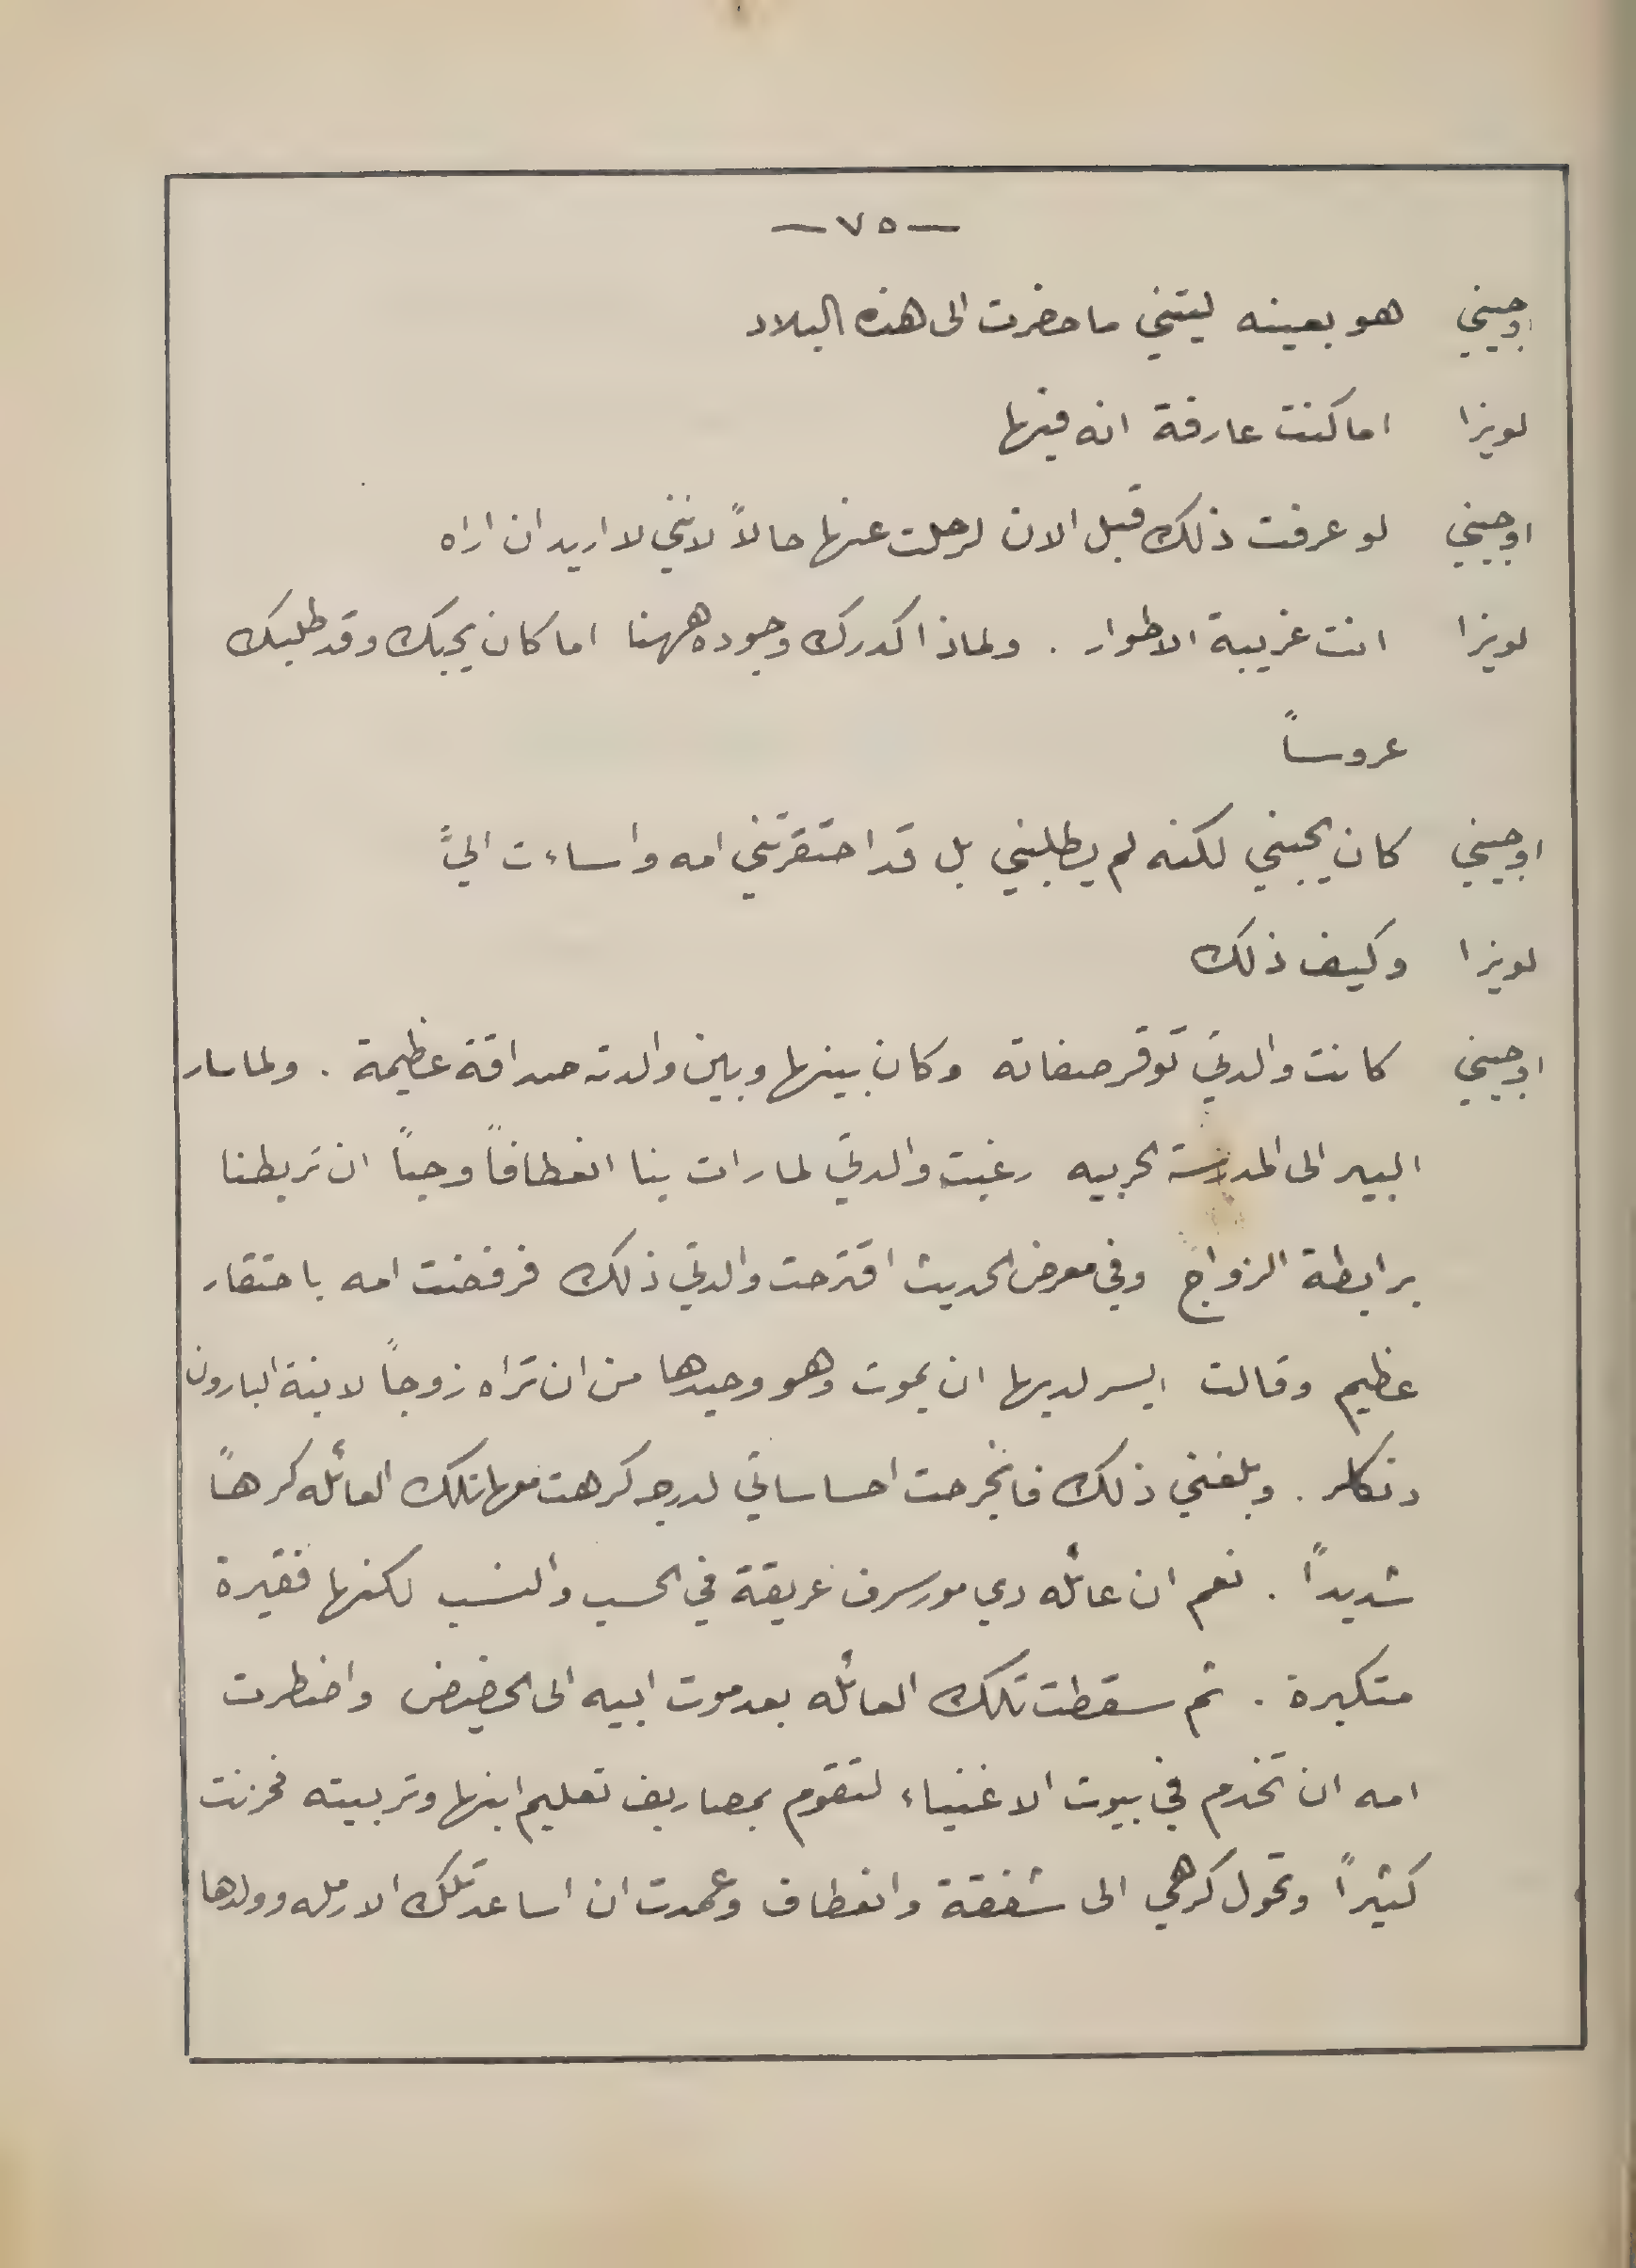 — ٧٥ —
اوجيني هو بعينه ليتني ما حضرت الى هذه البلاد
لويزا اما كنت عارفة انه فيها
اوجيني لو عرفت ذلك قبل الان لرحلت عنها حالاً لانني لا اريد ان اراه
لويزا انت غريبة الاطوار . ولماذا كدرك وجوده ههنا اما كان يحبك وقد طلبك
عروساً
اوجيني كان يحبني لكنه لم يطلبني بل قد احتقرتني امه واساءت اليَّ
لويزا وكيف ذلك
اوجيني كانت والدتي توقر صفاته وكان بينها وبين والدته صداقة عظيمة . ولما سار
البير الى المدرسة الحربيه رغبت والدتي لما رات بنا انعطافاً وحباً ان تربطنا
برابطة الزواج وفي معرض الحديث اقترحت والدتي ذلك فرفضت امه باحتقار
عظيم وقالت ايسر لديها ان يموت وهو وحيدها من ان تراه زوجاً لابنة البارون
دنكلر . وبلغني ذلك فانجرحت احساساتي لدرجه كرهت معها تلك العائله كرهاً
شديداً . نعم ان عائله دي مورسرف عريقة في الحسب والنسب لكنها فقيرة
متكبرة . ثم سقطت تلك العائله بعد موت ابيه الى الحضيض واضطرت
امه ان تخدم في بيوت الاغنياء لتقوم بمصاريف تعليم ابنها وتربيته فحزنت
كثيراً وتحول كرهي الى شفقة وانعطاف وعمدت ان اساعد تلك الارمله وولدها